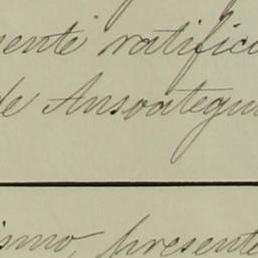 sente ratifica
de Ansoategui
ismo, presente